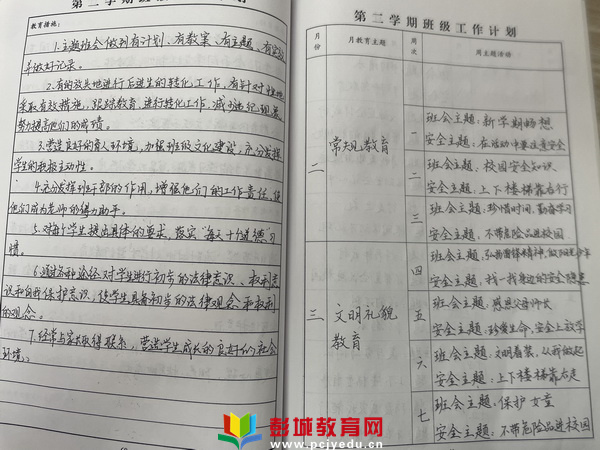 教育措施:
1.主题班会做到有计划、有教案、有主题、有实效
并做好记录。
2.有的放矢地进行后进生的转化工作,有针对性地
采取有效措施,跟踪教育,进行转化工作,减少违纪现象,
努力提高他们的成绩。
3.营造良好的育人环境,加强班级文化建设,充分发挥
学生的积极主动性。
4.充分发挥班干部的作用,增强他们的工作责任,使
他们成为老师的得力助手。
5.对每个学生提出具体的要求,落实“每天十
惯。
6.通过各种途径对学生进行初步的法律意识、权利意
识和自我保护意识,使学生具备初步的法律观念和权利
的观念。
7.经常与家长取得联系,营造学生成长的良好的社会
环境。
第二学期班级工作计划
月份
月教育主题
周次
周主题活动
二
常规教育
一
班会主题:新学期畅想
安全主题:在活动中要注意安全
二
班会主题:校园安全知识
安全主题:上下楼梯靠右行
三
班会主题:珍惜时间,勤奋学习
安全主题:不带危险品进校园
三
文明礼貌
教育
四
班会主题:弘扬雷锋精神,做
安全主题:找一找身边的安全隐患
五
班会主题:感恩父母师长
安全主题:珍爱生命,安全上放学
六
班会主题:文明着装,从我做起
安全主题:上下楼梯靠右走
七
班会主题:保护女童
安全主题:不带危险品进校园
彭城教育网
www.pcjyedu.cn